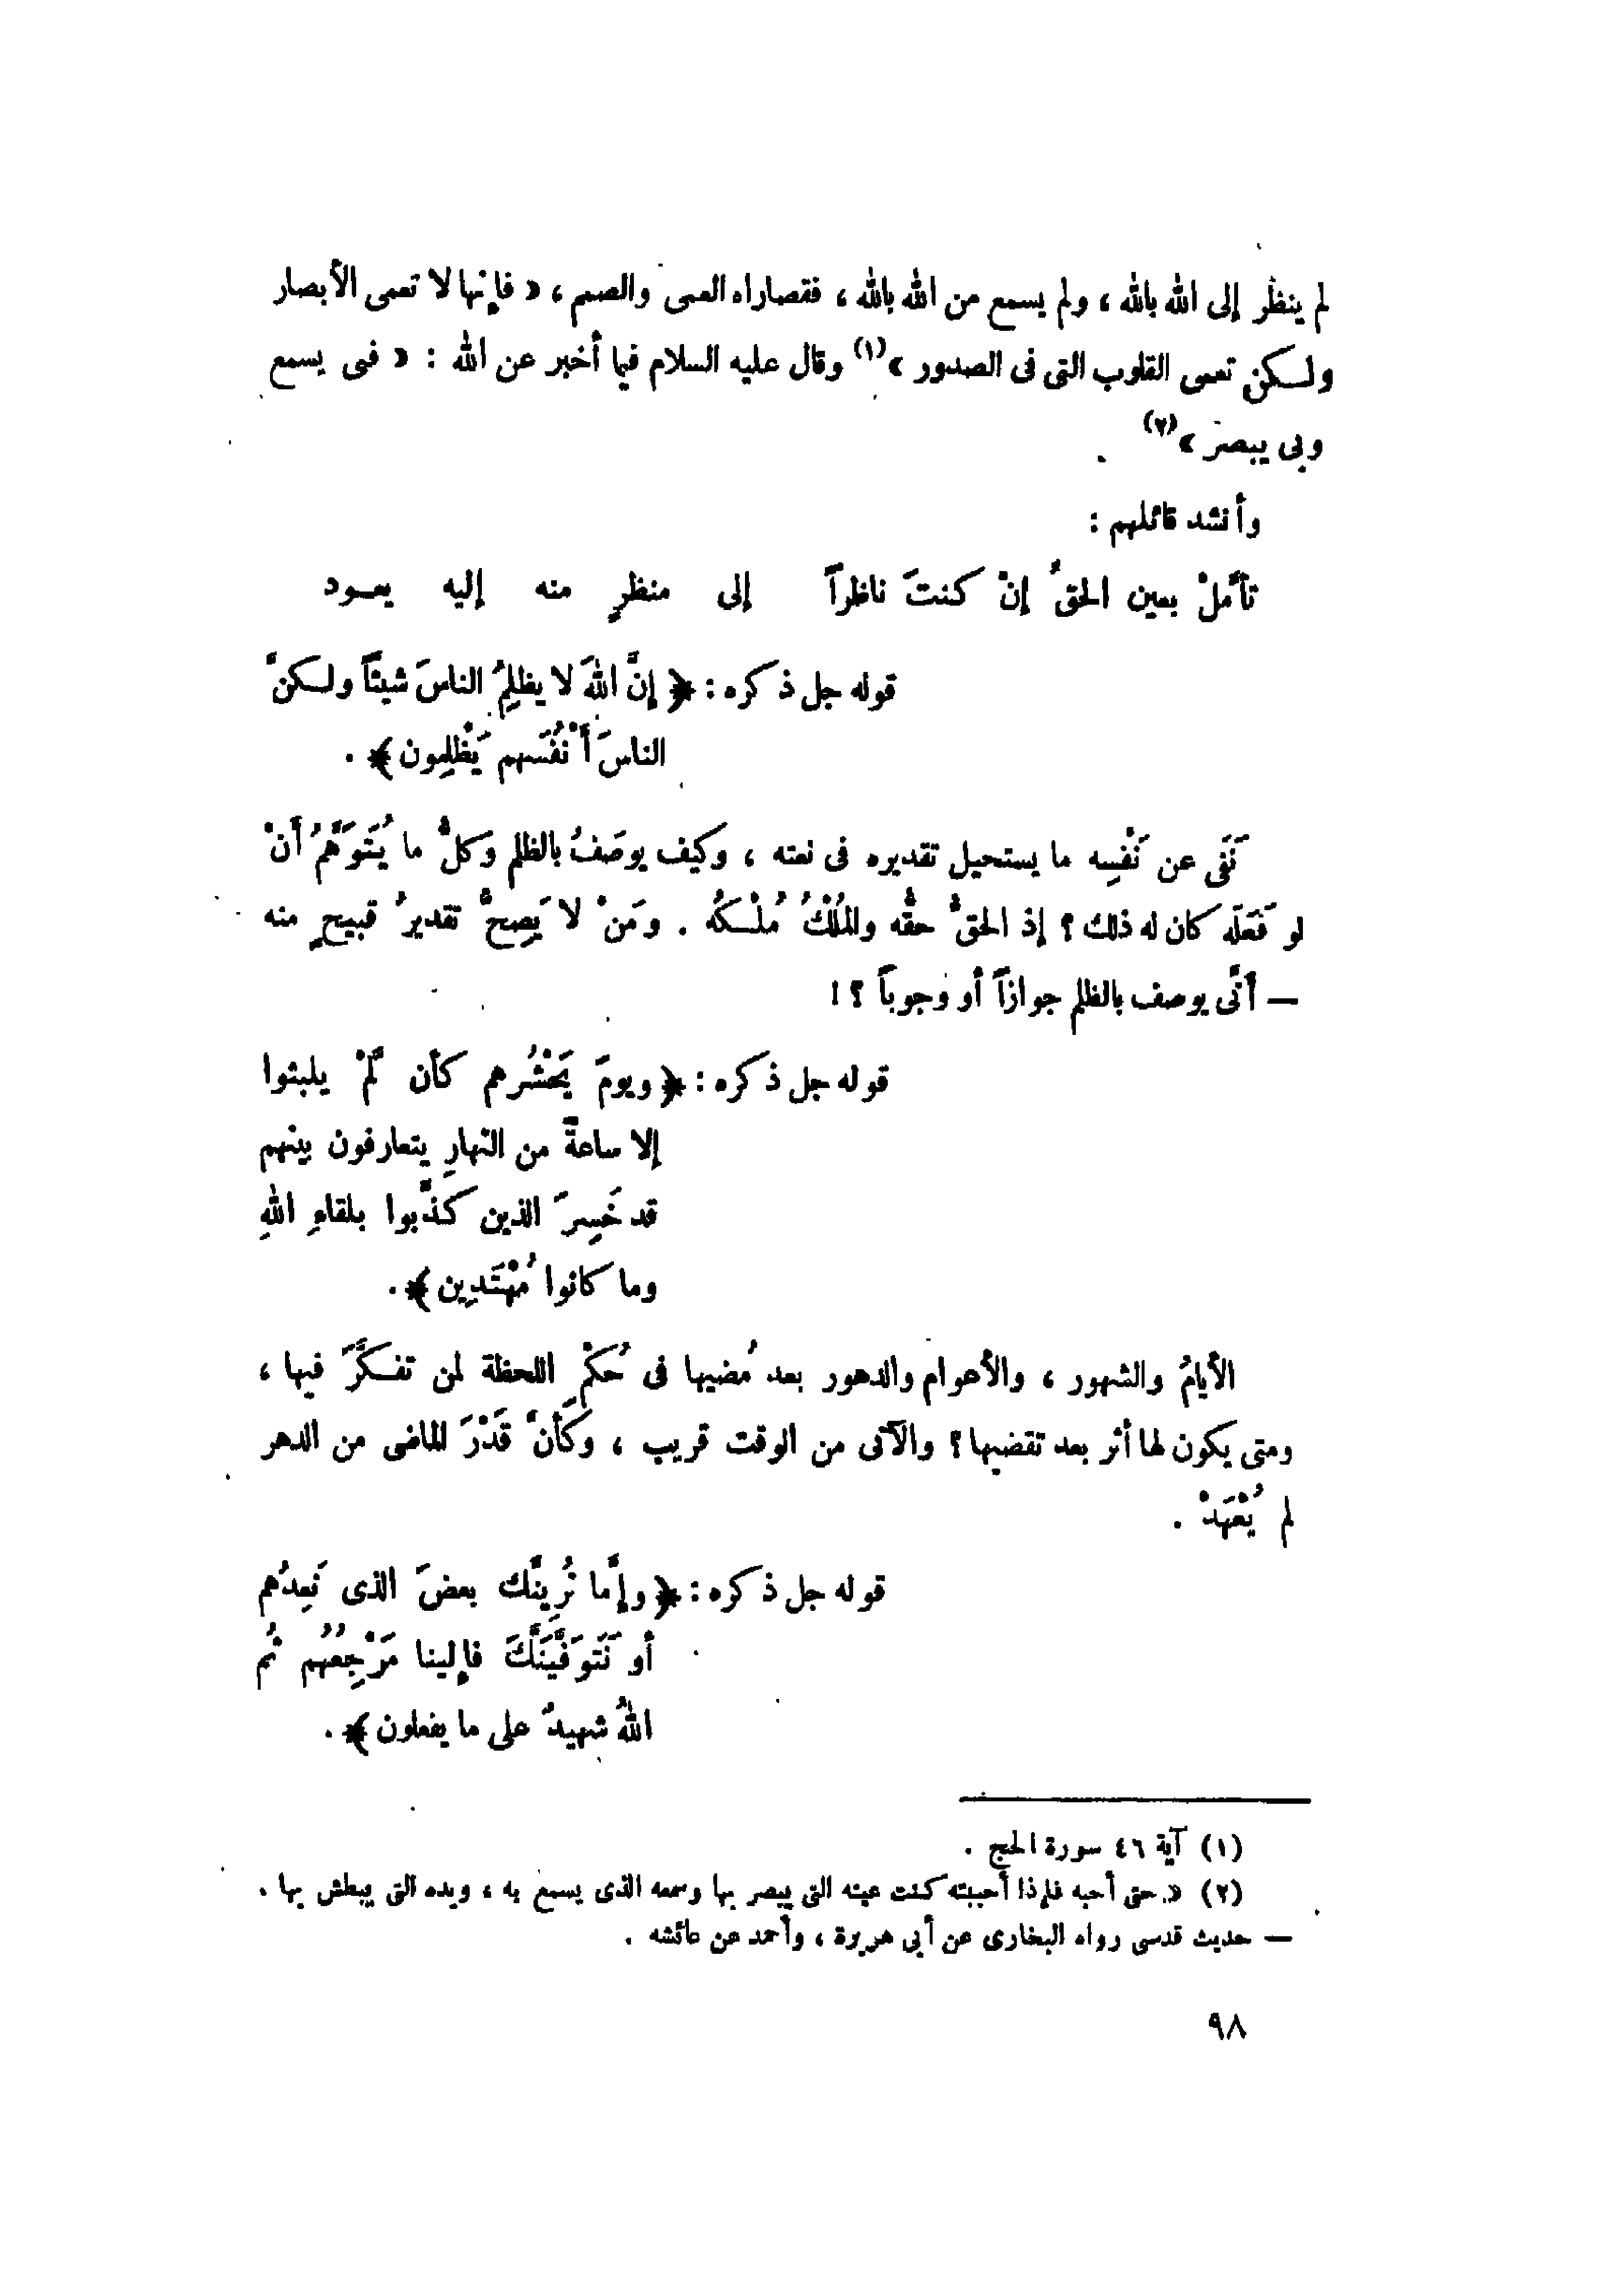 لم ينظر إلى الله بالله ، ولم يسمع من الله بالله ، فقصاراه العمى والصمم ، « فإنها لا تعمى الأبصار
ولكن تعمى القلوب التى فى الصدور »(١) وقال عليه السلام فيما أخبر عن الله : « فبى يسمع
وبى يبصر »(٢) .
وأنشد قائلهم :
تأمّلْ بعين الحقِّ إنْ كنتَ ناظراً إلى منظرٍ منه إليه يعود
قوله جل ذكره : ﴿ إنَّ اللهَ لا يظلِمُ الناسَ شيئاً ولكنَّ
الناسَ أَنْفُسَهم يَظْلِمون ﴾ .
نَفَى عن نَفْسِه ما يستحيل تقديره فى نعته ، وكيف يوصَفُ بالظلم وَكلُّ ما يُتَوَهَّمُ أنْ
لو فَعَلَه كان له ذلك ؟ إذ الحقُّ حقُّه والمُلْكُ مُلْكُه . ومَنْ لا يَصِحُّ تقديرُ قبيحٍ منه
— أنَّى يوصف بالظلم جوازاً أو وجوباً ؟ !
قوله جل ذكره : ﴿ ويومَ يَحْشُرهم كأن لَّمْ يلبثوا
إلا ساعةً من النَّهارِ يتعارفون بينهم
قد خَسِرَ الذين كذَّبوا بلقاءِ اللهِ
وما كانوا مُهْتَدِين ﴾ .
الأيامُ والشهور ، والأعوام والدهور بعد مُضيها فى حُكْمِ اللحظة لمن تفكَّرَ فيها ،
ومتى يكون لها أثر بعد تقضيها ؟ والآتى من الوقت قريب ، وكَأنَّ قَدْرَ الماضى من الدهر
لم يُعْهَدْ .
قوله جل ذكره : ﴿ وإمَّا نُرِيَنَّك بعضَ الذى نَعِدُهم
أو نَتَوَفَّيَنَّكَ فإلينا مَرْجِعُهُم ثُم
اللهُ شهيدٌ على ما يفعلون ﴾ .
(١) آية ٤٦ سورة الحج .
(٢) « حتى أحبه فإذا أحببته كنت عينه التى يبصر بها وسمعه الذى يسمع به ، ويده التى يبطش بها .
— حديث قدسى رواه البخارى عن أبى هريرة ، وأحمد عن عائشه .
٩٨